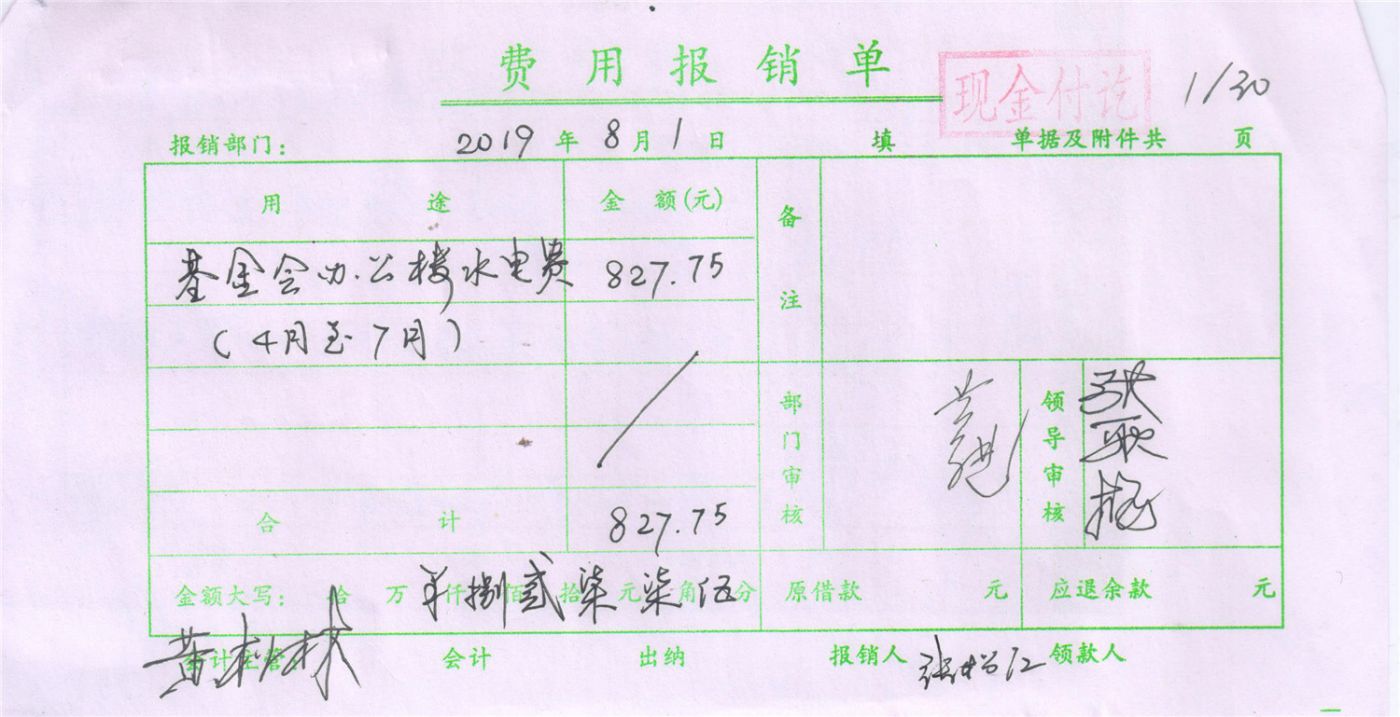 费用报销单
现金付讫
1/30
报销部门： 2019 年 8 月 1 日 填 单据及附件共 页
用途 金额(元) 备注
基金会办公楼水电费 827.75
（4月至7月）
部门审核 领导审核
合计 827.75
金额大写： 拾 万 仟 捌 佰 贰 拾 柒 元 柒 角 伍 分 原借款 元 应退余款 元
会计主管 会计 出纳 报销人 领款人